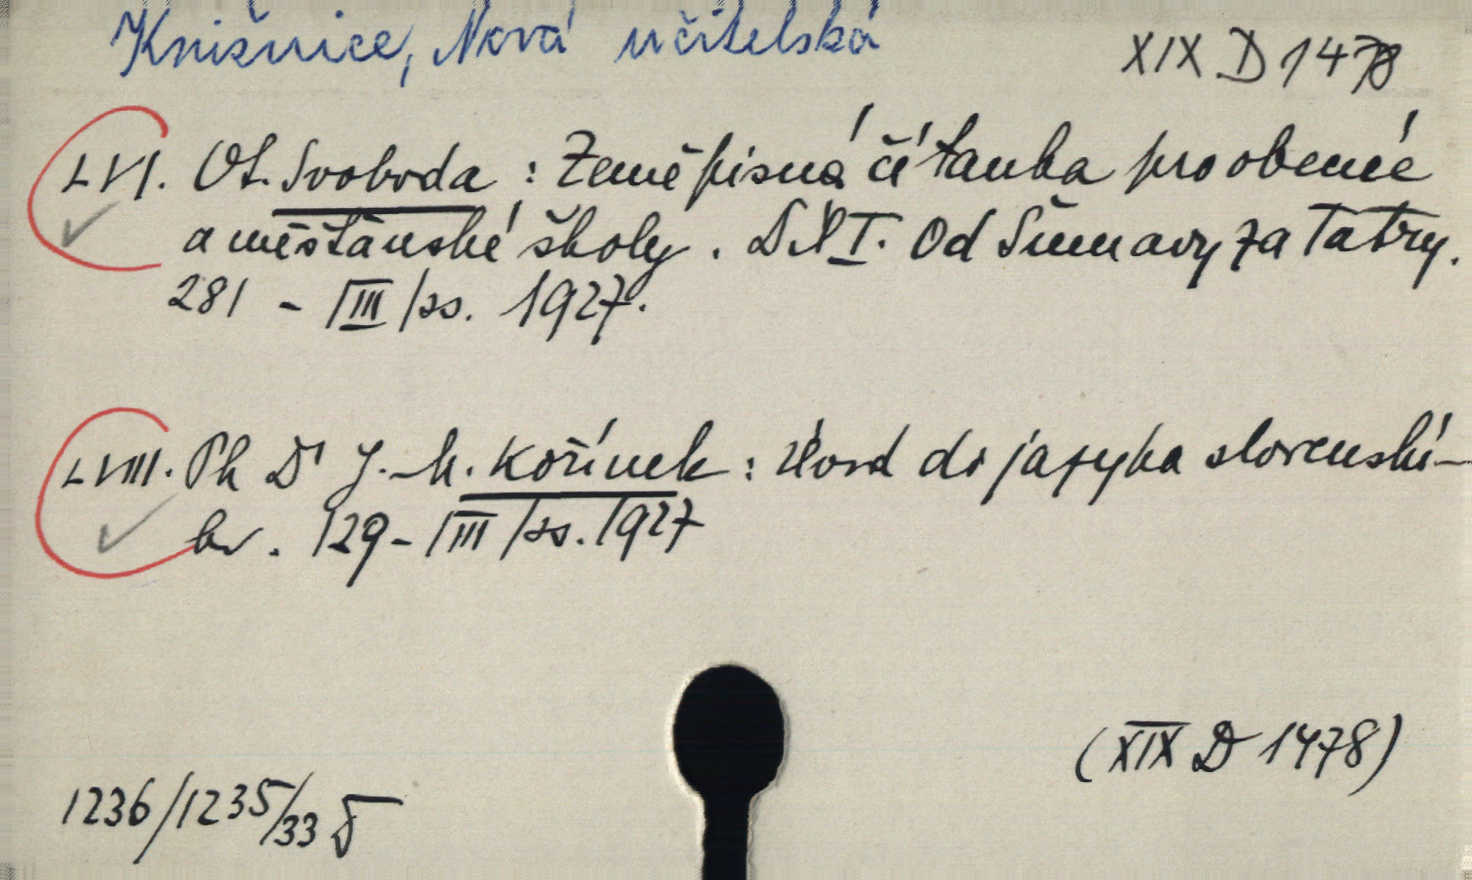 Knižnice, Nová učitelská
XIX D 1478
LVI. Ot. Svoboda : Zeměpisná čítanka pro obecné
a měšťanské školy. Díl I. Od Šumavy za Tatry.
281 - III /ss. 1927.
LVIII. Ph Dr J. M. Kořínek : Úvod do jazyka slovenské-
ho. 129 - III /ss. 1927
(XIX D 1478)
1236/1235/33